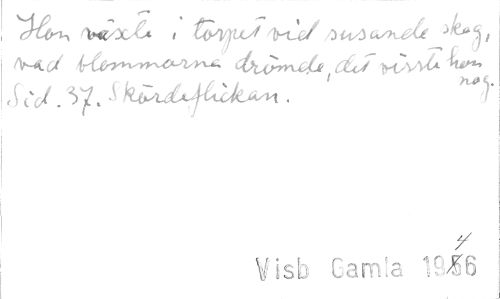 Hon växte i torpet vid susande skog,
vad blommorna drömde, det visste hon
nog.
Sid. 37. Skördeflickan.
4
Visb Gamla 1956